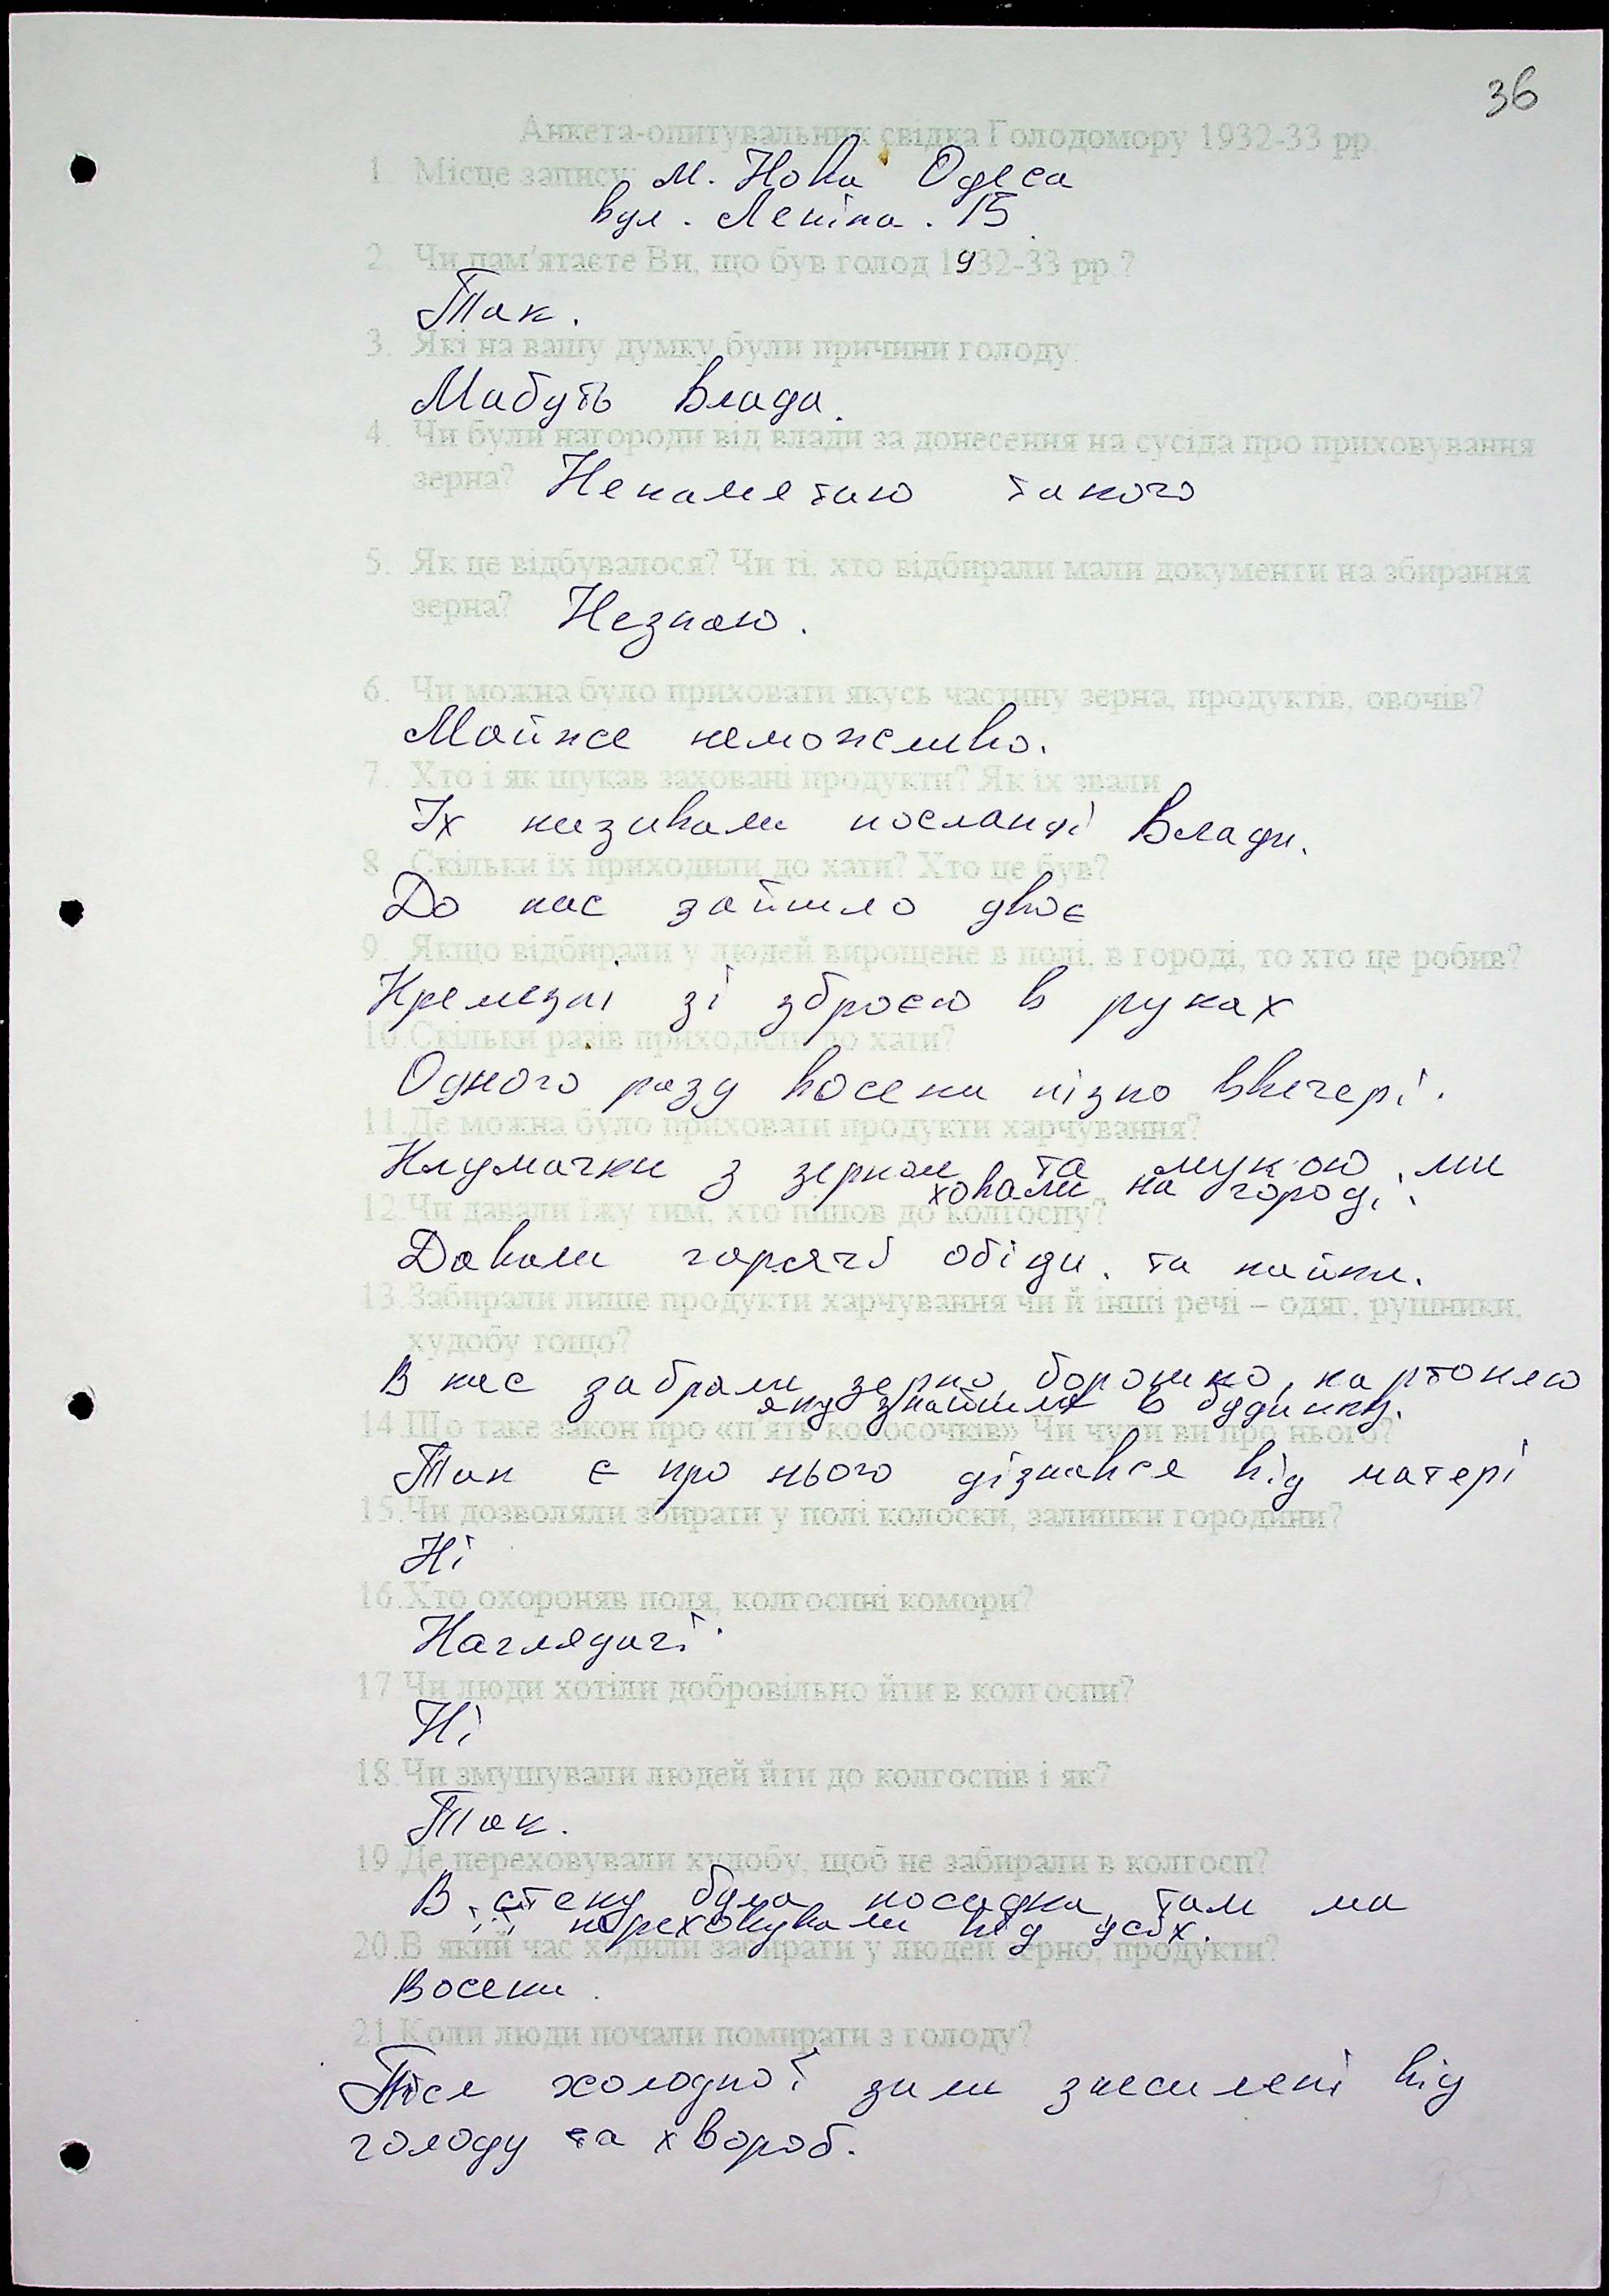 36
Анкета-опитувальник свідка Голодомору 1932-33 рр.
1. Місце запису: м. Нова Одеса
вул. Леніна. 15
2. Чи пам'ятаєте Ви, що був голод 1932-33 рр.?
Так.
3. Які на вашу думку були причини голоду:
Мабуть Влада.
4. Чи були нагороди від влади за донесення на сусіда про приховування
зерна? Непамятаю такого
5. Як це відбувалося? Чи ті, хто відбирали мали документи на збирання
зерна? Незнаю.
6. Чи можна було приховати якусь частину зерна, продуктів, овочів?
Майже неможливо.
7. Хто і як шукав заховані продукти? Як їх звали
Їх називали посланці Влади.
8. Скільки їх приходили до хати? Хто це був?
До нас зайшло двоє
9. Якщо відбирали у людей вирощене в полі, в городі, то хто це робив?
Кремезні зі зброєю в руках
10. Скільки разів приходили до хати?
Одного разу восени пізно ввечері.
11. Де можна було приховати продукти харчування?
Клумачки з зерном та мукою ми
ховали на городі.
12. Чи давали їжу тим, хто пішов до колгоспу?
Давали гарячі обіди та пайки.
13. Забирали лише продукти харчування чи й інші речі – одяг, рушники,
худобу тощо?
В нас забрали зерно, борошно, картоплю
яку знайшли в будинку.
14. Що таке закон про «п'ять колосочків» Чи чули ви про нього?
Так є про нього дізнався від матері
15. Чи дозволяли збирати у полі колоски, залишки городини?
Ні
16. Хто охороняв поля, колгоспні комори?
Наглядачі.
17. Чи люди хотіли добровільно йти в колгоспи?
Ні
18. Чи змушували людей йти до колгоспів і як?
Так.
19. Де переховували худобу, щоб не забирали в колгосп?
В степу була посадка, там ми
її переховували від усіх.
20. В який час ходили забирати у людей зерно, продукти?
Восени.
21. Коли люди почали помирати з голоду?
Після холодної зими знесилені від
голоду та хвороб.